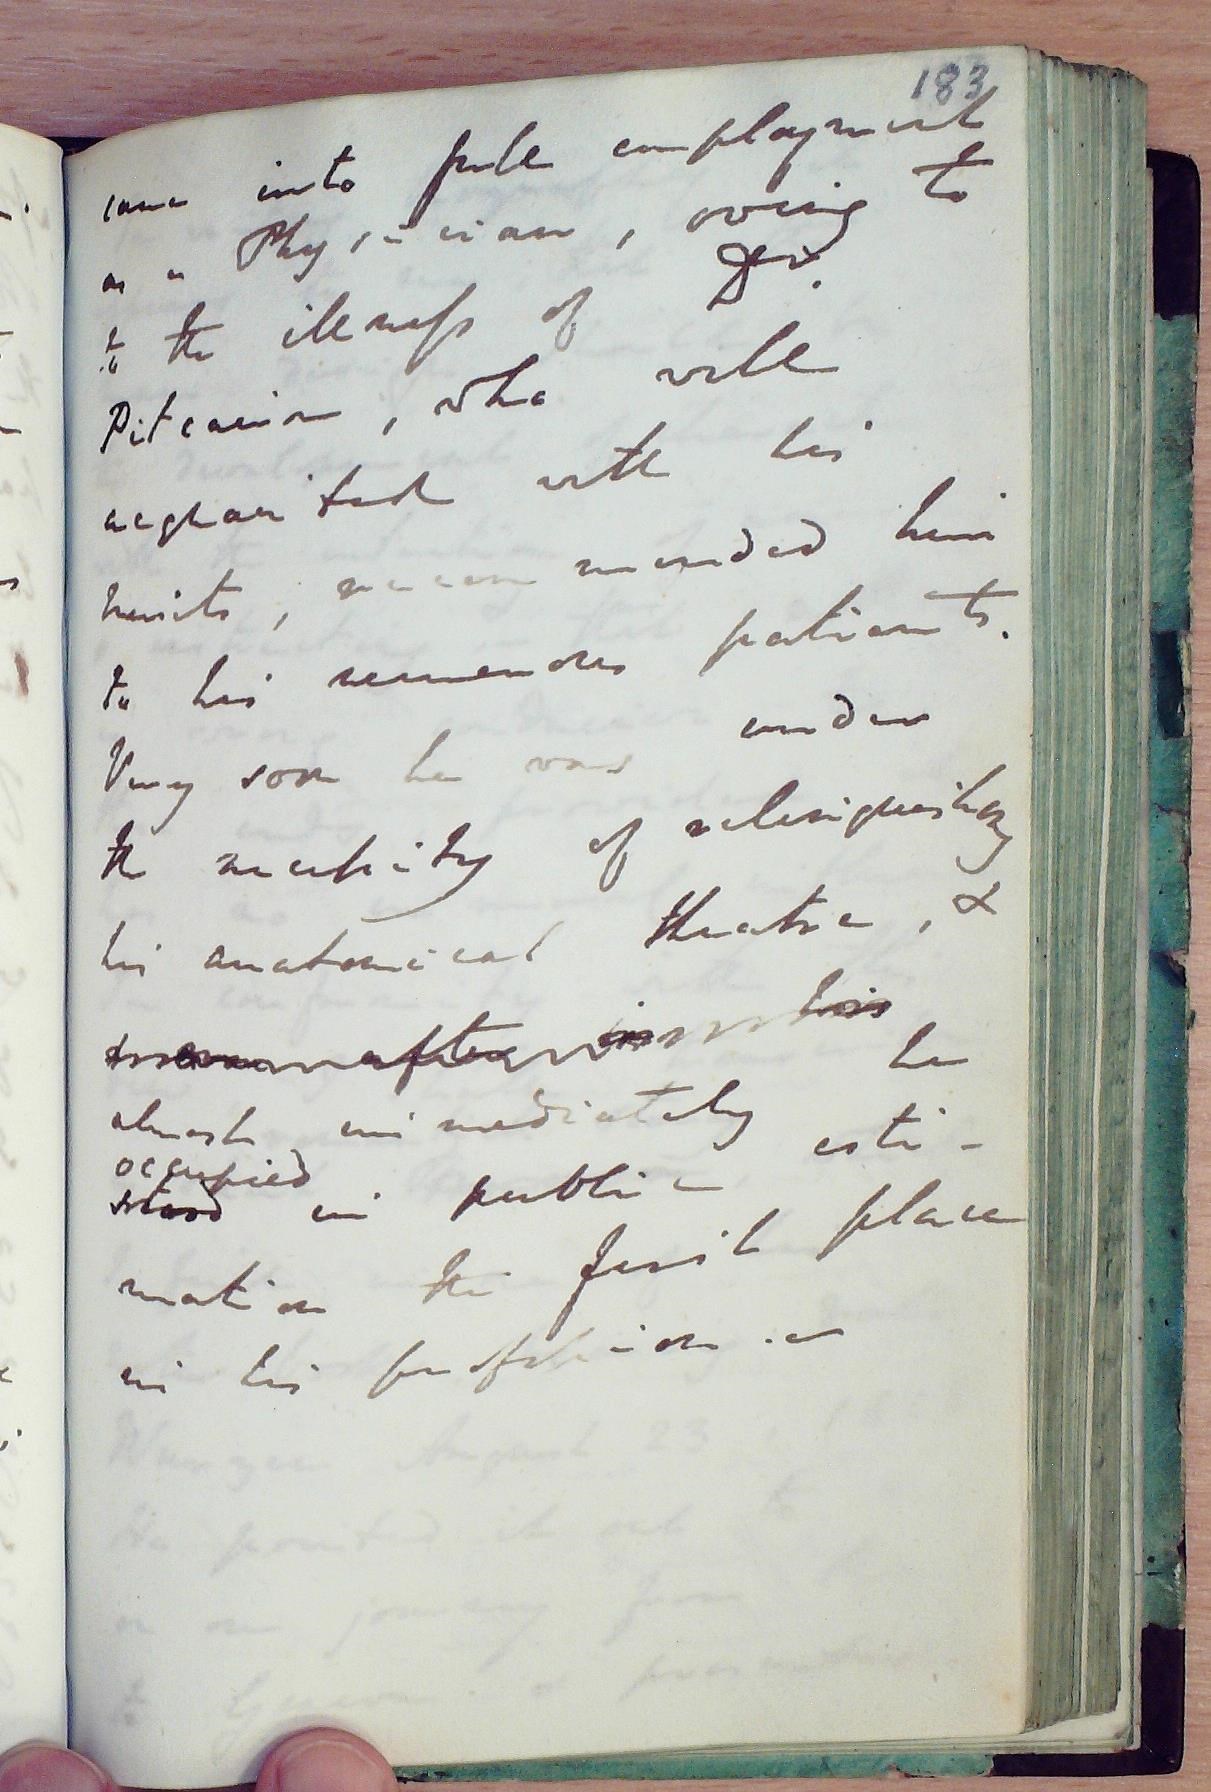 183
came into full employment
as a Physician, owing to
to the illness of Dr.
Pitcairn, who well
acquainted with his
merits, recommended him
to his numerous patients.
Very soon he was under
the necessity of relinquishing
his anatomical theatre, &
soon after in his
almost immediately he
occupied
stood in public esti-
mation the first place
in his profession.